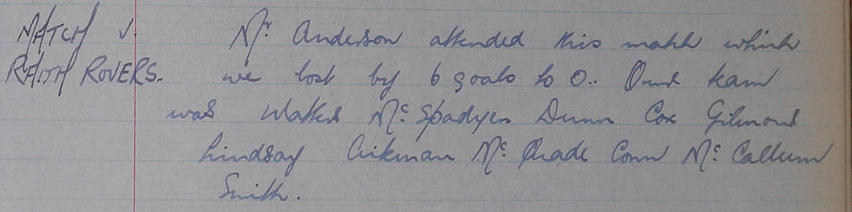 MATCH V. Mr Anderson attended this match which
RAITH ROVERS. we lost by 6 goals to 0.. Our team
was Watters McSpadyen Dunn Cox Gilmour
Lindsay Aikman McQuade Conn McCallum
Smith.